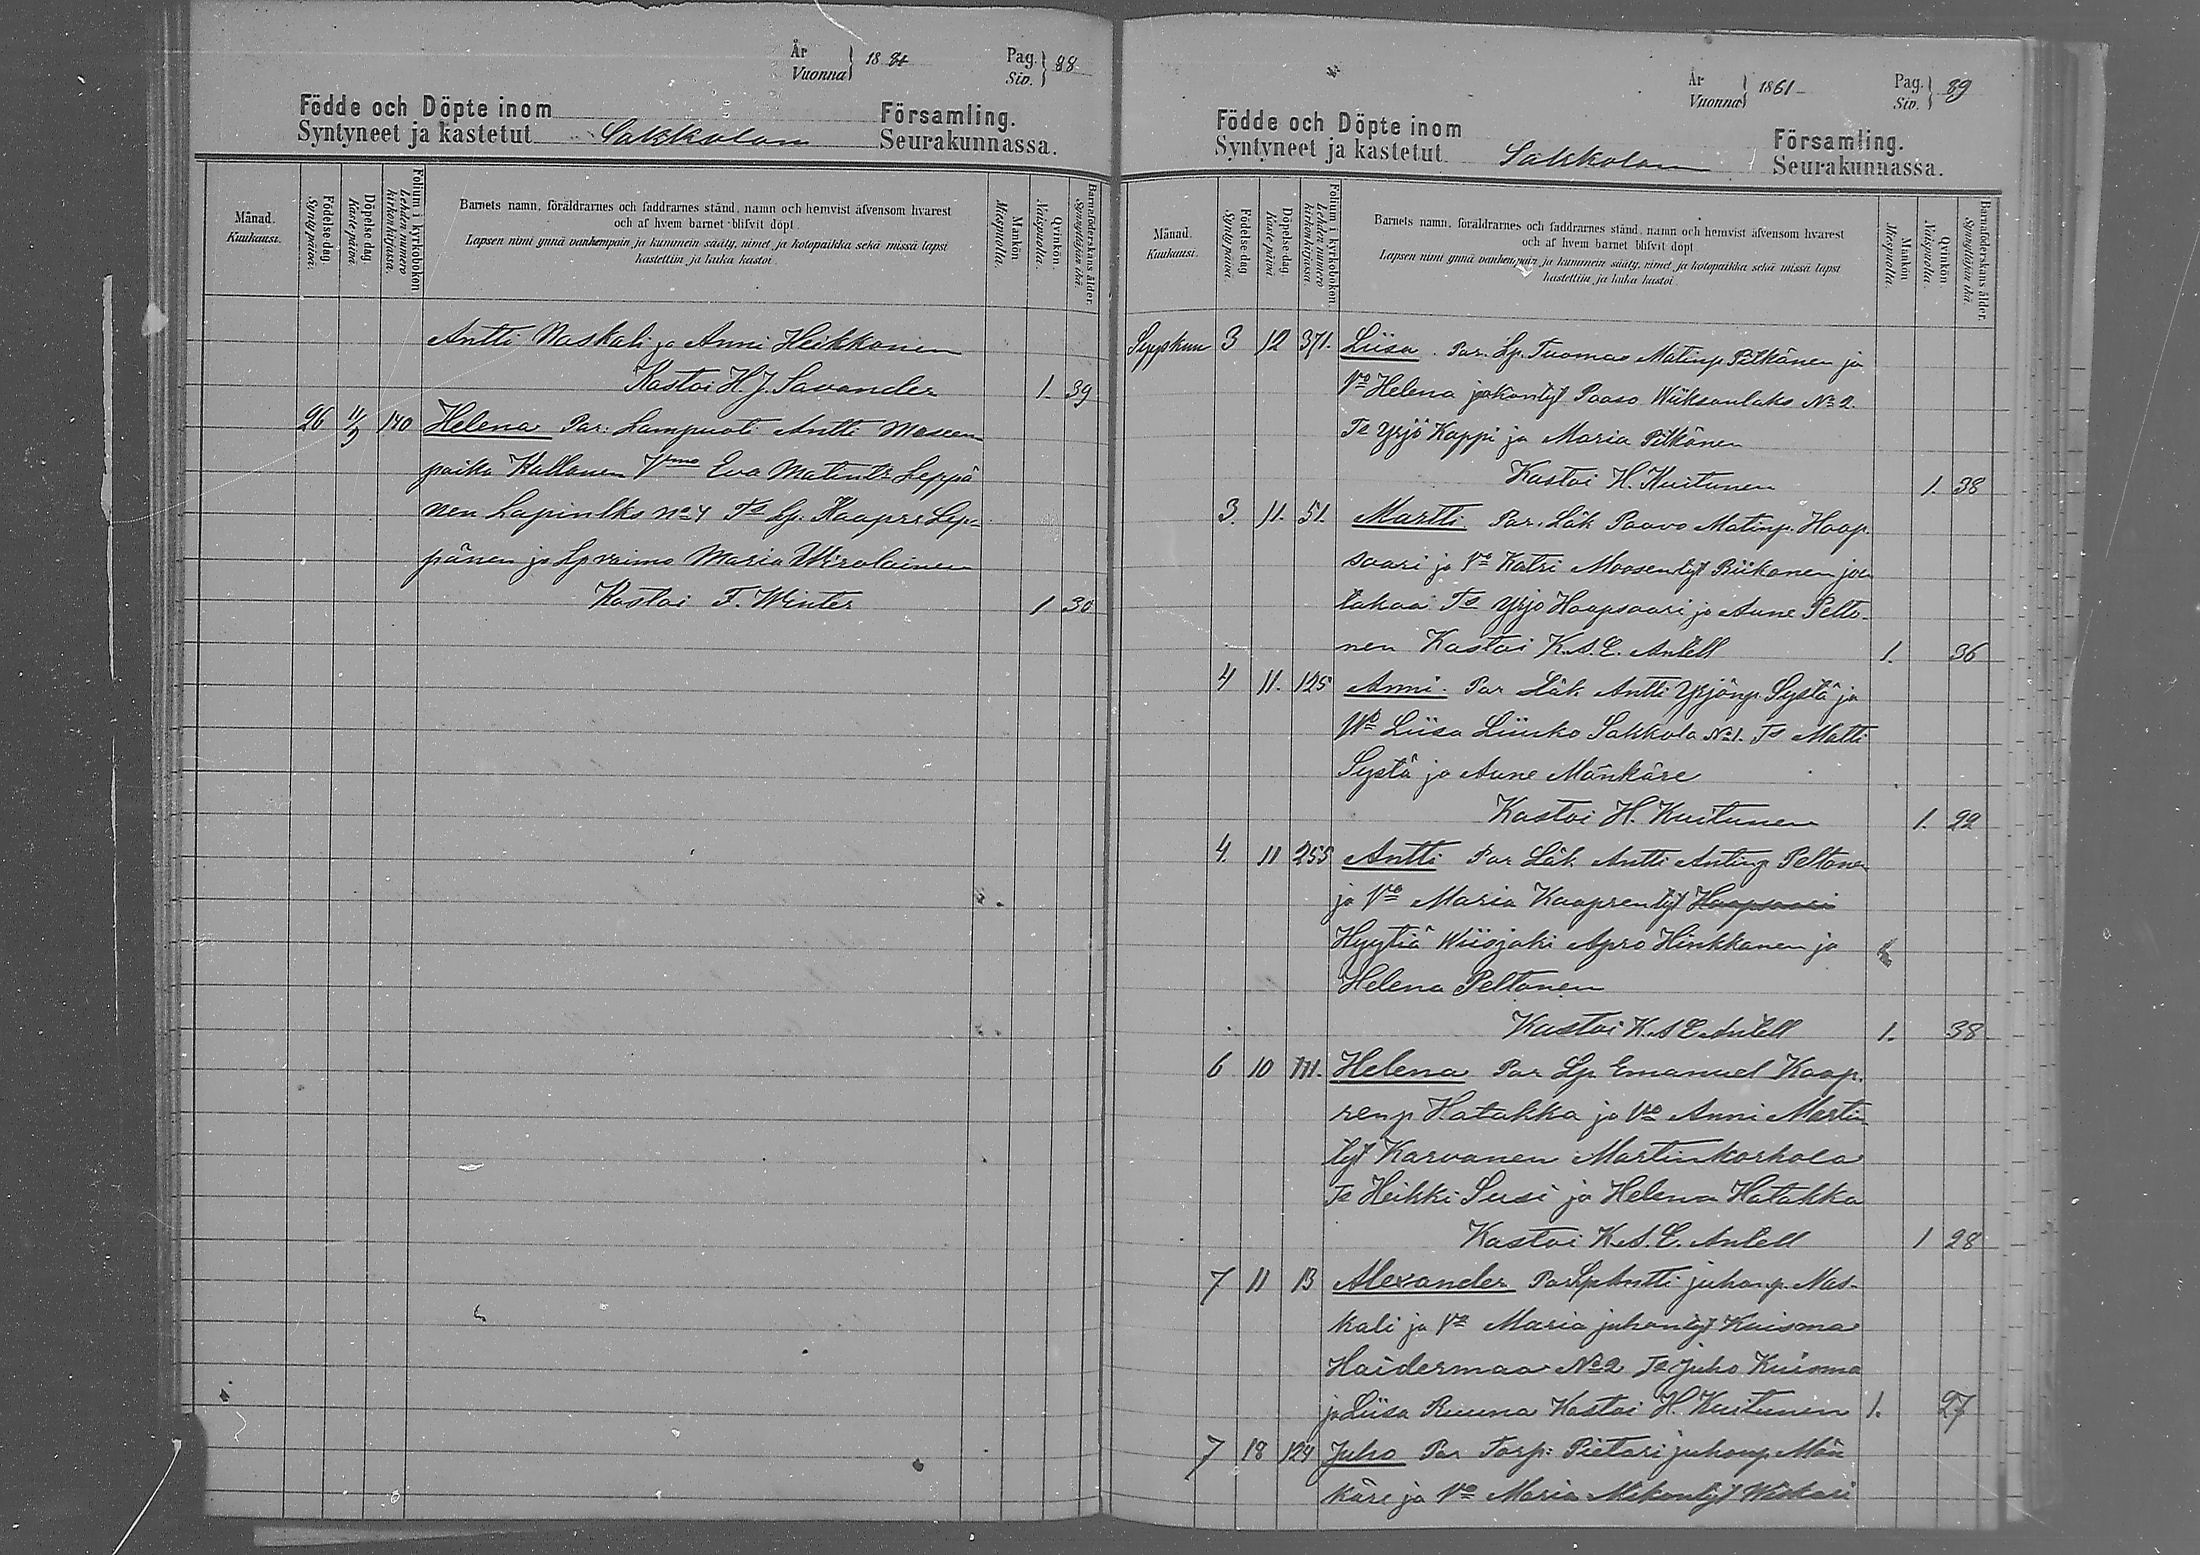 År
Vuonna } 18 81
Pag.
Siv. } 88
Födde och Döpte inom
Syntyneet ja kastetut Sakkolan
Församling.
Seurakunnassa.
Månad.
Kuukausi.
Födelse-dag.
Synty päivä.
Döpelse-dag.
Kaste päivä.
Folium i kyrkoboken
Lehden numero kirkonkirjassa.
Barnets namn, föräldrarnes och faddrarnes stånd, namn och hemvist äfvensom hvarest
och af hvem barnet blifvit döpt.
Lapsen nimi ynnä vanhempain ja kummein sääty, nimet ja kotopaikka sekä missä lapsi
kastettiin ja kuka kastoi.
Mankön
Miespuolia.
Qvinkön.
Vaispuolia.
Barnaföderskans ålder.
Synnyttäjän ikä.
Antti Naskali ja Anni Heikkonen
Kastoi H. J. Savander 1 39
26 11/9 140 Helena Var. Lampuoti Antti
poika Kallonen Eva Matint. Leppä
nen Lapinlks No 4 Ts Lp. Kaapre Lep-
pänen ja Lp vaimo Maria Wirolainen
Kastoi F. Winter 1 30
År
Vuonna } 1861
Pag.
Siv. } 89
Födde och Döpte inom
Syntyneet ja kastetut Sakkolan
Församling.
Seurakunnassa.
Månad.
Kuukausi.
Födelse-dag
Synty päivä.
Döpelse-dag
Kaste päivä
Folium i kyrkoboken
Lehden numero kirkonkirjassa.
Barnets namn, föräldrarnes och faddrarnes stånd, namn och hemvist äfvensom hvarest
och af hvem barnet blifvit döpt
Lapsen nimi ynnä vanhempain ja kummein sääty, nimet ja kotopaikka sekä missä lapsi
kastettiin ja kuka kastoi.
Mankön
Miespuolia.
Qvinkön
Vaispuolia.
Barnaföderskans ålder.
Synnyttäjän ikä.
Syyskuu 3 12 371. Liisa. Var. Lp. Tuomas Matinp. Pitkänen ja
Vo Helena Paaso Wiiksanlaks No 2.
Ts Yrjö Kappi ja Maria Pitkänen
Kastoi H. Kuitunen 1. 38
3. 11. 51. Martti. Var. Läk Paavo Matinp. Haap-
saari ja Vo Katri Moosentyt Riikonen joen
takaa Ts Yrjö Haapsaari ja Aune Pelto-
nen Kastoi K. A. E. Antell 1. 36
4 11. 125 Anni. Var Läk Antti Yrjönp. Systä ja
Vo Liisa Liinko Sakkola No 1. Ts Matti
Systä ja Aune Mänkäre
Kastoi H. Kuitunen 1. 22
4. 11 255 Antti Var Läk Antti Antinp Peltonen
ja Vo Maria Kaaprentyt Haapsaari
Hyytiä Wiisjoki Apro Hinkkanen ja
Helena Peltonen
Kastoi K. A E. Antell 1. 38
6 10 111. Helena Var Lp Emanuel Kaap-
renp. Hatakka ja Vo Anni Martin
tyt Karvanen Martinkorhola
Ts Heikki Susi ja Helena Hatakka
Kastoi K. A. E. Antell 1 28
7 11 13 Alexander Var Lp Antti juhonp. Nas-
kali ja Vo Maria juhontyt Kuisma
Haidermaa No 2 Ts Juho Kuisma
ja Liisa Ruuna Kastoi H. Kuitunen 1. 27
7 18 124 Juho Var Torp: Pietari juhonp Män
käre ja Vo Maria Mikontyt